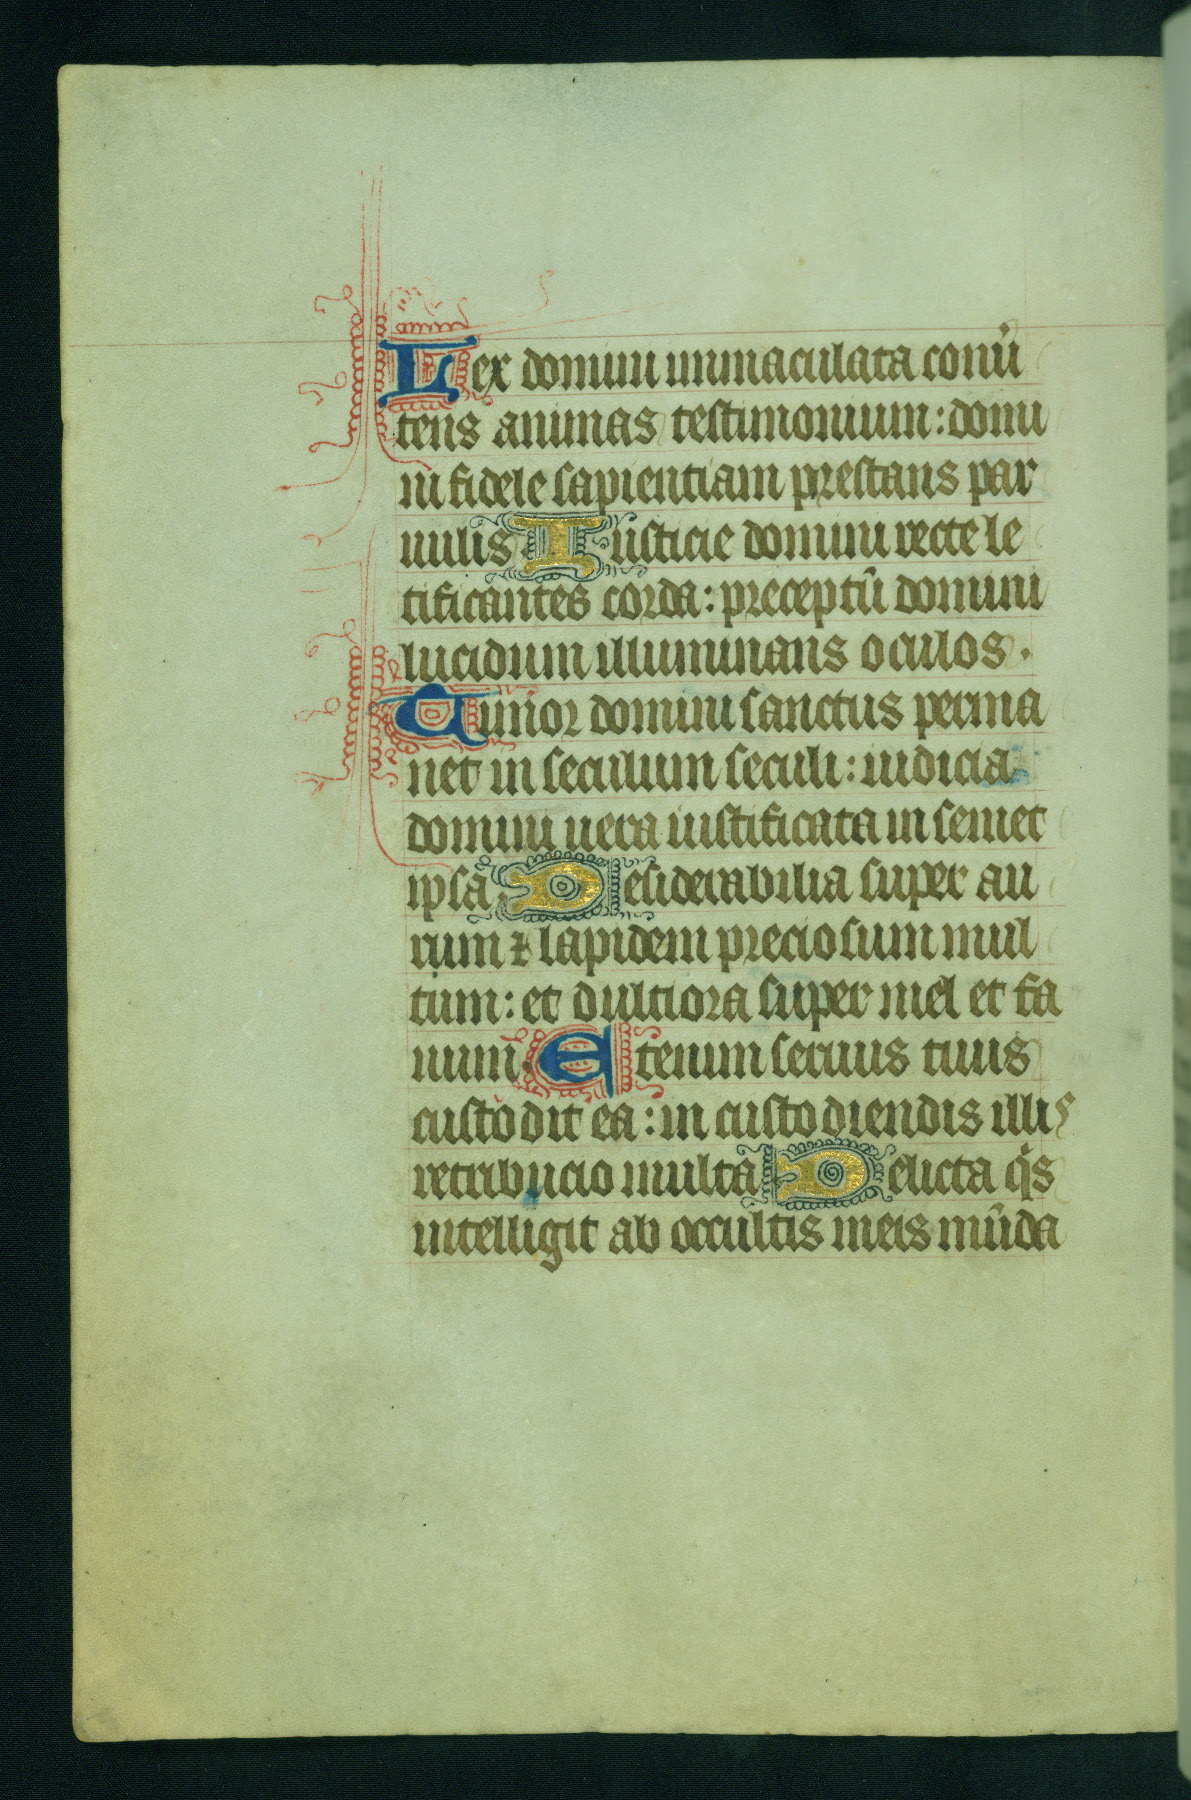 Lex domini inmaculata conu̾
tens animas testimonium : domi
ni fidele sapientiam prestans par
uulis Iusticie domini recte le
tificantes corda : preceptū domini
lucidum illuminans oculos .
Timor domini sanctus perma
net in seculum seculi : iudicia
domini uera iustificata in semet
ipsa Desiderabilia super au
rum ⁊ lapidem preciosum mul
tum : et dulciora super mel et fa
uum Etenim seruus tuus
custodit ea : in custodiendis illis
retribucio multa Delicta qͥs
intelligit ab occultis meis mūda